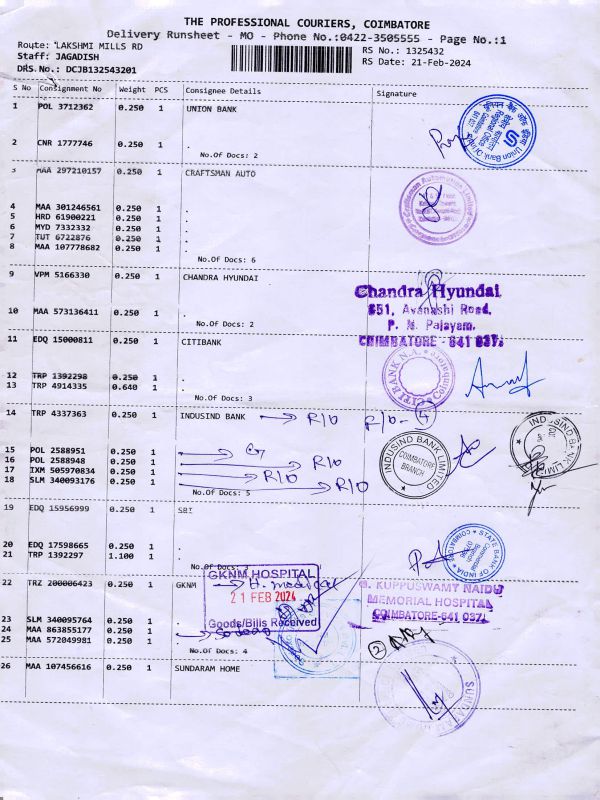 THE PROFESSIONAL COURIERS, COIMBATORE
Delivery Runsheet - MO - Phone No.:0422-3505555 - Page No.:1
Route: LAKSHMI MILLS RD
Staff: JAGADISH
DRS.No.: DCJB132543201
RS No.: 1325432
RS Date: 21-Feb-2024
S No Consignment No Weight PCS Consignee Details Signature
1 POL 3712362 0.250 1 UNION BANK
2 CNR 1777746 0.250 1 .
No.Of Docs: 2
3 MAA 297210157 0.250 1 CRAFTSMAN AUTO
4 MAA 301246561 0.250 1 .
5 HRD 61900221 0.250 1 .
6 MYD 7332332 0.250 1 .
7 TUT 6722876 0.250 1 .
8 MAA 107778682 0.250 1 .
No.Of Docs: 6
9 VPM 5166330 0.250 1 CHANDRA HYUNDAI
Chandra Hyundai
851, Avanashi Road,
P. N. Palayam,
COIMBATORE - 641 037.
10 MAA 573136411 0.250 1 .
No.Of Docs: 2
11 EDQ 15000811 0.250 1 CITIBANK
CITIBANK N.A.
12 TRP 1392298 0.250 1 .
13 TRP 4914335 0.640 1 .
No.Of Docs: 3
14 TRP 4337363 0.250 1 INDUSIND BANK R/O R/O - 4
INDUSIND BANK LIMITED
COIMBATORE
BRANCH
15 POL 2588951 0.250 1
16 POL 2588948 0.250 1 R/O
17 IXM 505970834 0.250 1 R/O
18 SLM 340093176 0.250 1 R/O
No.Of Docs: 5
19 EDQ 15956999 0.250 1 SBI
STATE BANK OF INDIA
20 EDQ 17598665 0.250 1 .
21 TRP 1392297 1.100 1 .
22 TRZ 200006423 0.250 1 GKNM
GKNM HOSPITAL
21 FEB 2024
Goods/Bills Received
G. KUPPUSWAMY NAIDU
MEMORIAL HOSPITAL
COIMBATORE-641 037.
23 SLM 340095764 0.250 1 .
24 MAA 863855177 0.250 1
25 MAA 572049981 0.250 1 .
No.Of Docs: 4
26 MAA 107456616 0.250 1 SUNDARAM HOME